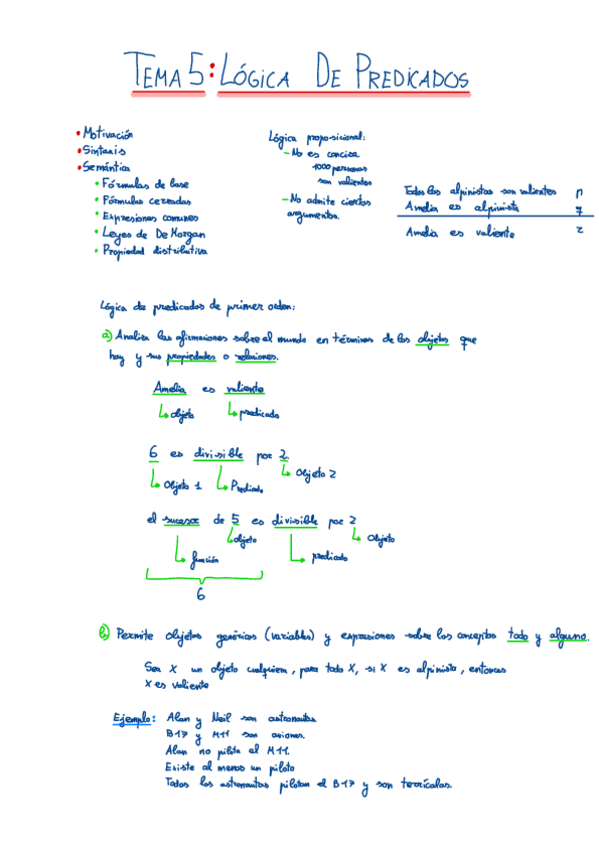 TEMA 5: LÓGICA DE PREDICADOS
• Motivación
• Sintaxis
• Semántica
• Fórmulas de base
• Fórmulas cerradas
• Expresiones comunes
• Leyes de De Morgan
• Propiedad distributiva
Lógica proposicional:
- No es concisa
1000 personas
son valientes
- No admite ciertos
argumentos.
Todos los alpinistas son valientes p
Amelia es alpinista q
Amelia es valiente r
Lógica de predicados de primer orden:
a) Analiza las afirmaciones sobre el mundo en términos de los objetos que
hay y sus propiedades o relaciones.
Amelia es valiente
objeto predicado
6 es divisible por 2.
Objeto 1 Predicado Objeto 2
el sucesor de 5 es divisible por 2
función objeto predicado Objeto
6
b) Permite objetos genéricos (variables) y expresiones sobre los conceptos todo y alguno.
Sea X un objeto cualquiera, para todo X, si X es alpinista, entonces
X es valiente
Ejemplo: Alan y Neil son astronautas
B17 y M11 son aviones.
Alan no pilota el M11.
Existe al menos un piloto
Todos los astronautas pilotan el B17 y son terrícolas.